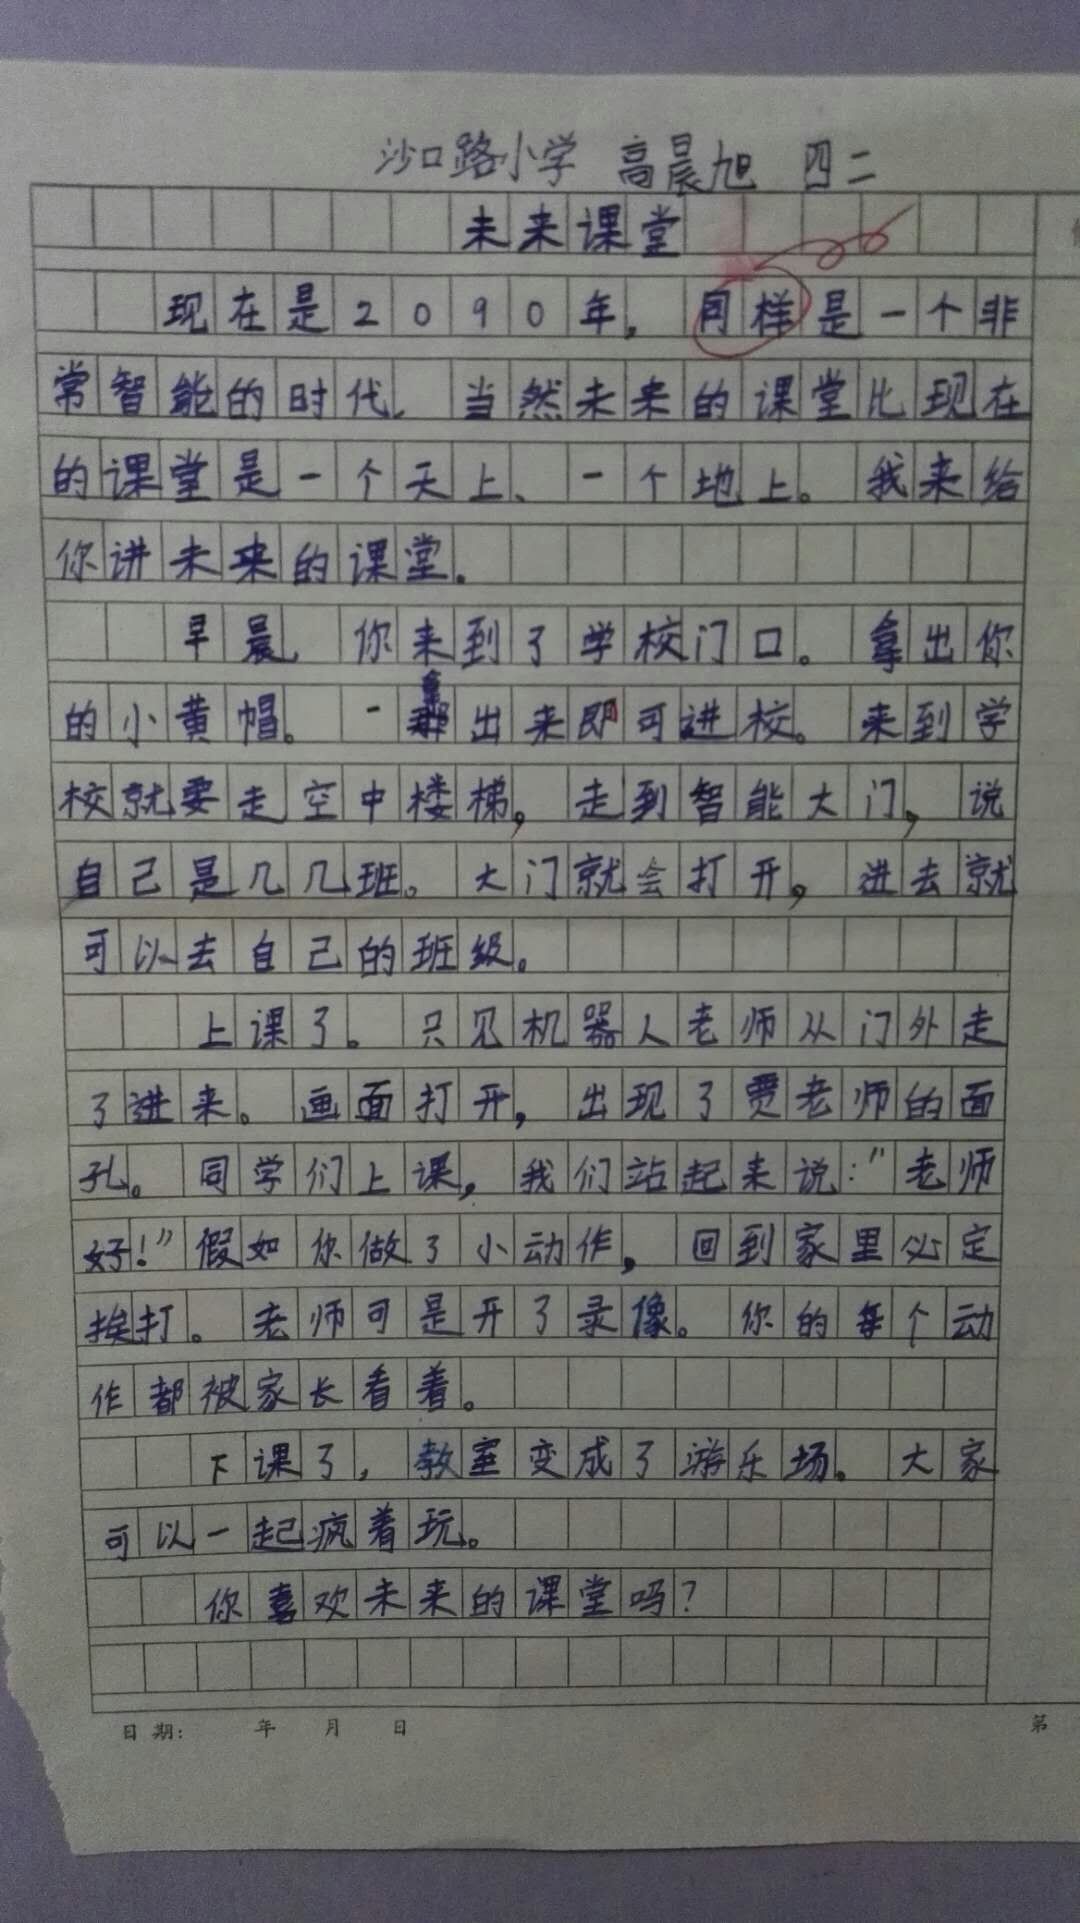 沙口路小学 高晨旭 四二
未来课堂
现在是2090年,同样是一个非
常智能的时代、当然未来的课堂比现在
的课堂是一个天上、一个地上。我来给
你讲未来的课堂.
早晨、你来到了学校门口。拿出你
的小黄帽。一拿出来即可进校。来到学
校就要走空中楼梯,走到智能大门,说
自己是几几班。大门就会打开,进去就
可以去自己的班级。
上课了。只见机器人老师从门外走
了进来。画面打开,出现了贾老师的面
孔。同学们上课,我们站起来说:"老师
好!"假如你做了小动作,回到家里必定
挨打。老师可是开了录像。你的每个动
作都被家长看着。
下课了,教室变成了游乐场。大家
可以一起疯着玩。
你喜欢未来的课堂吗?
日期: 年 月 日
第